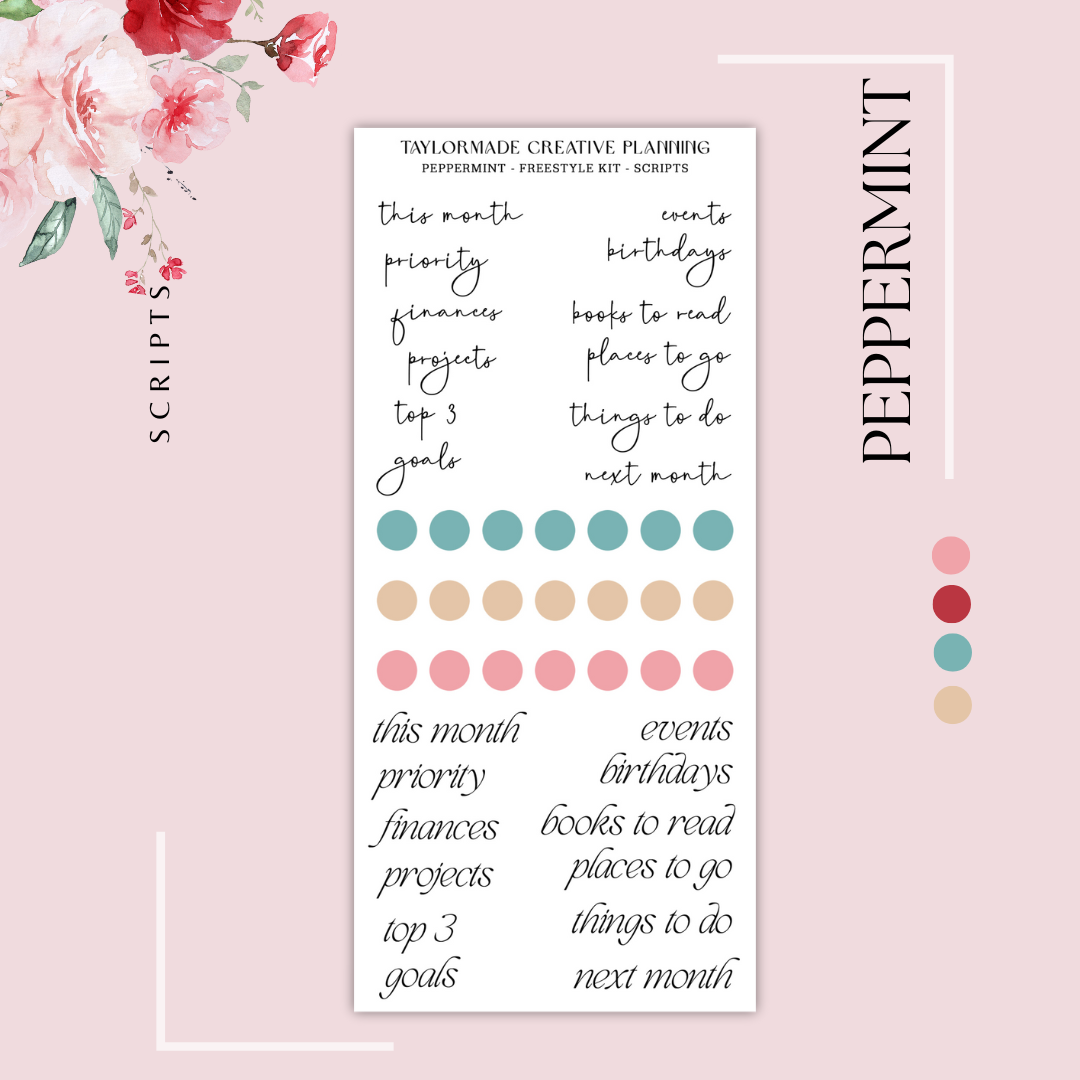 TAYLORMADE CREATIVE PLANNING
PEPPERMINT - FREESTYLE KIT - SCRIPTS
this month
priority
finances
projects
top 3
goals
events
birthdays
books to read
places to go
things to do
next month
this month
priority
finances
projects
top 3
goals
events
birthdays
books to read
places to go
things to do
next month
SCRIPTS
PEPPERMINT